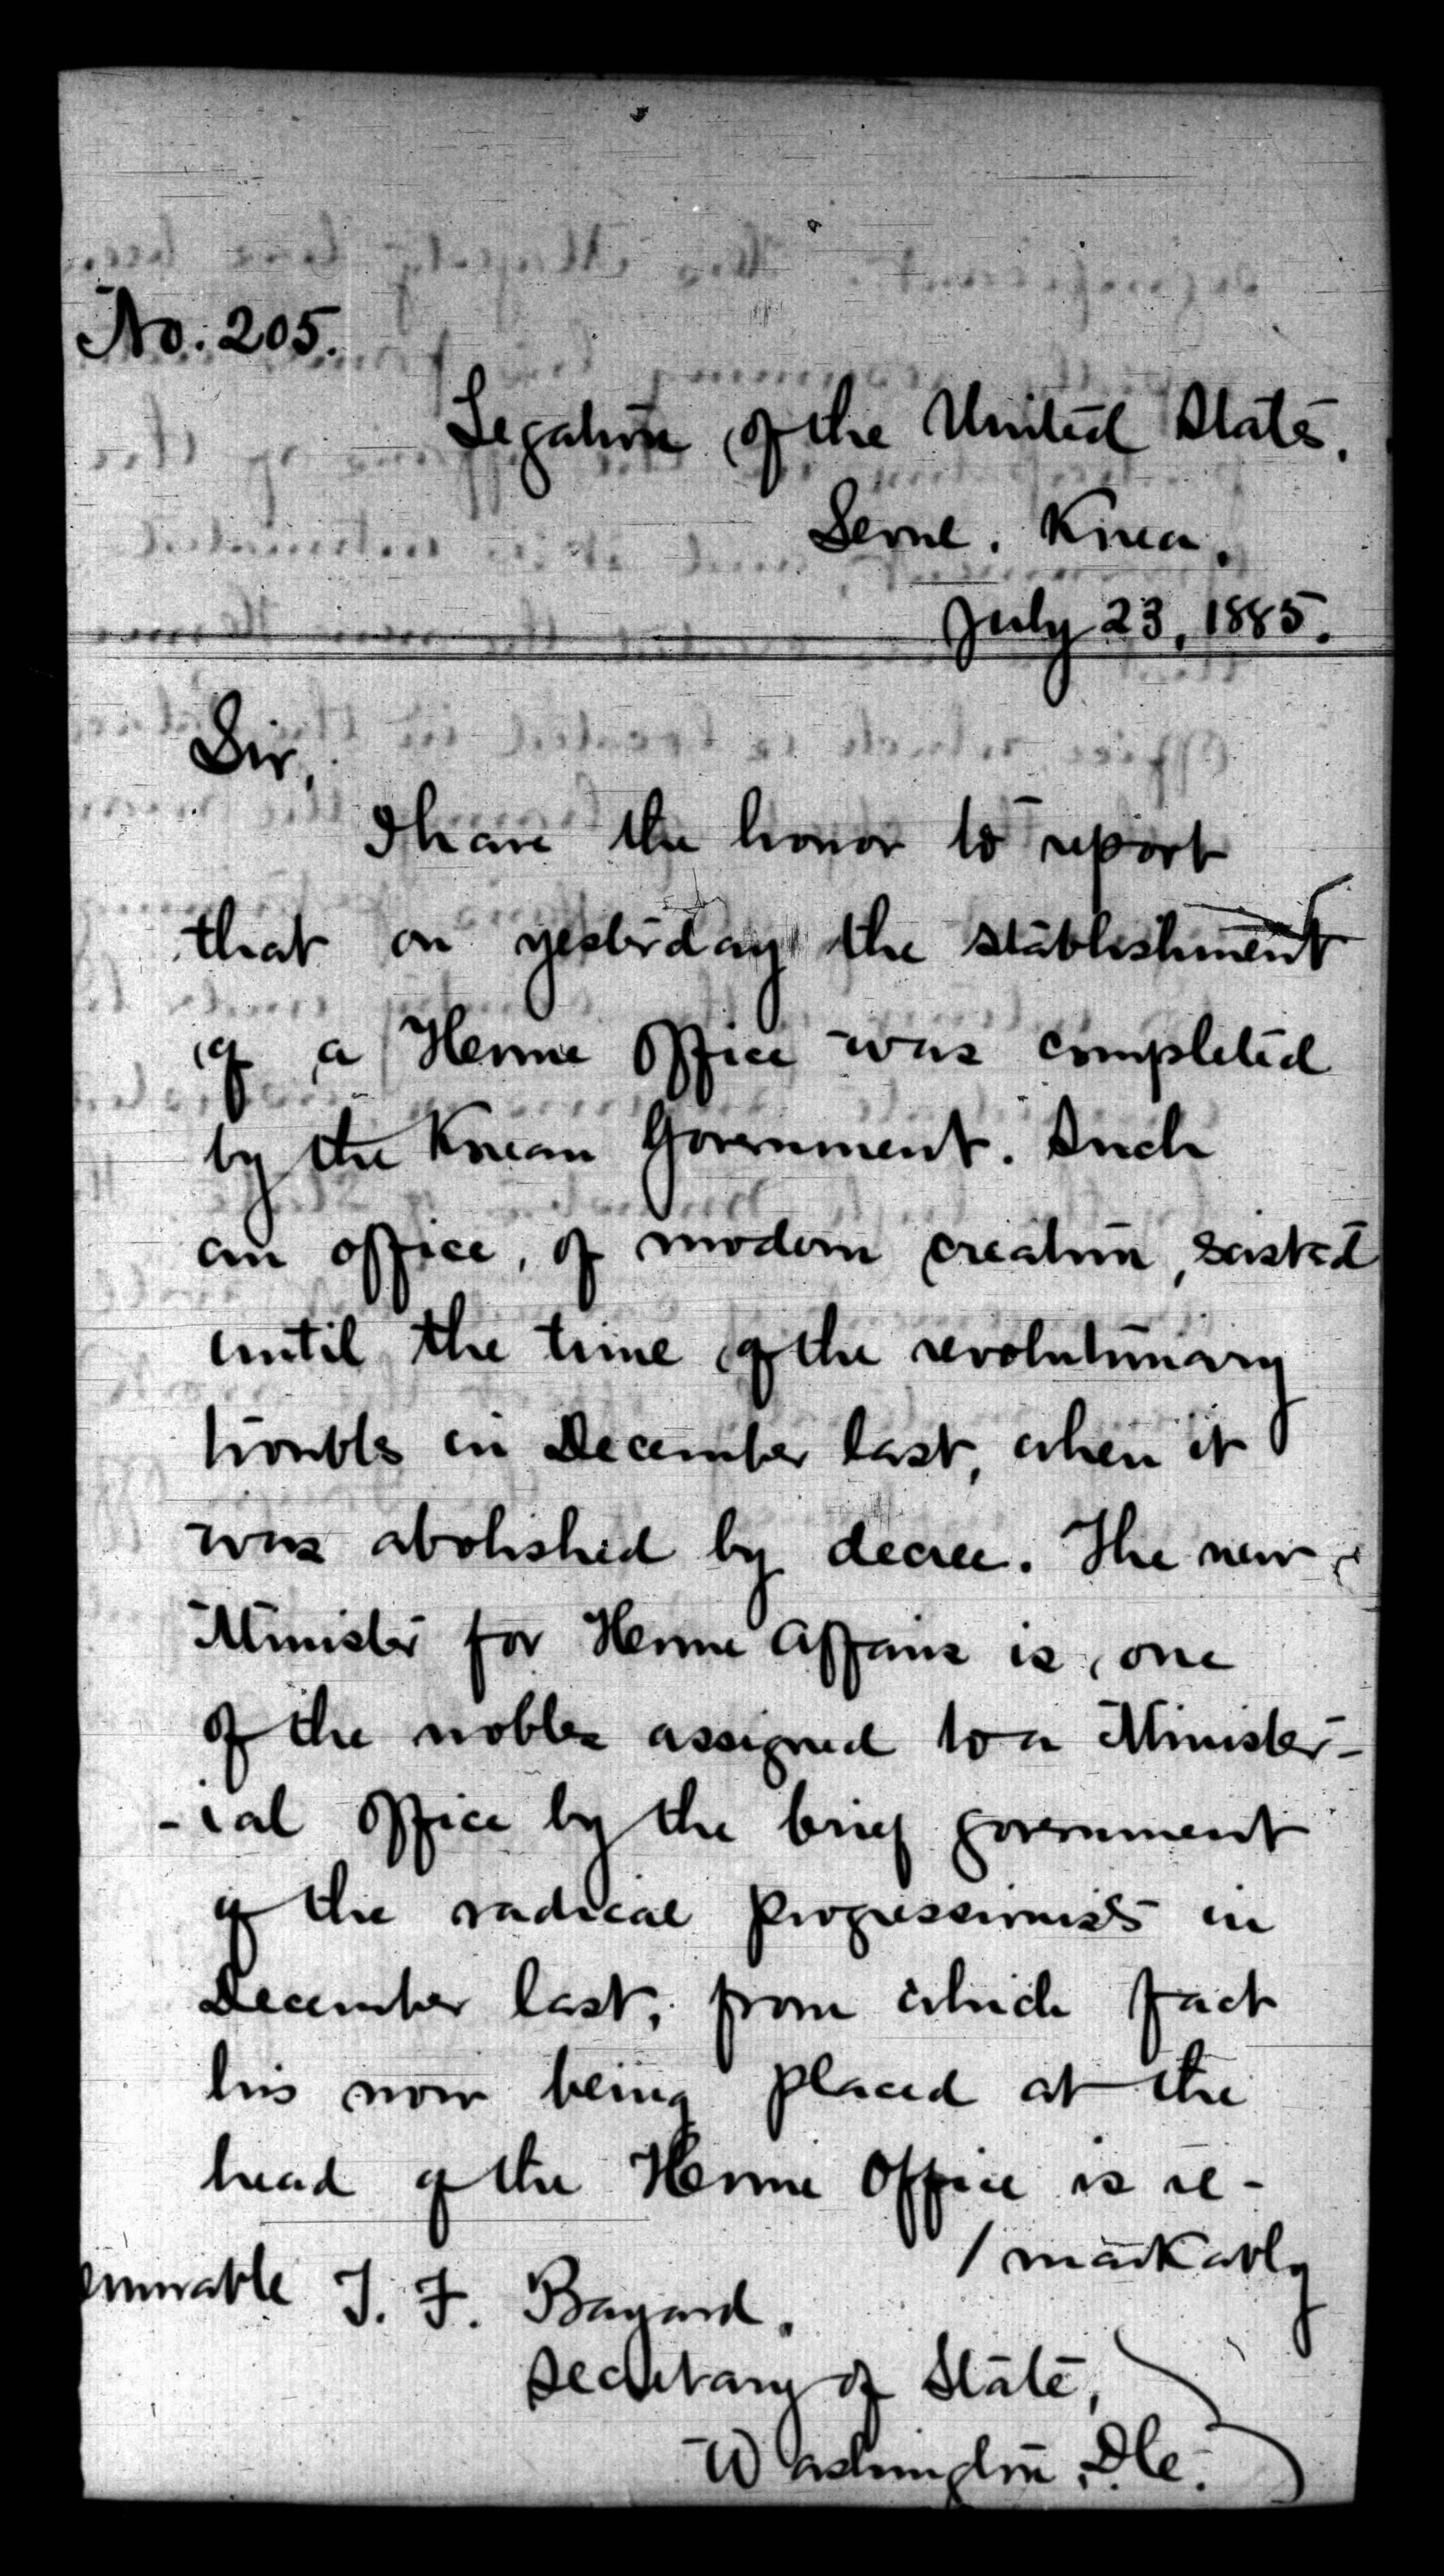 No. 205.
Legation of the United States.
Seoul. Korea.
July 23, 1885.
Sir,
I have the honor to report
that on yesterday the establishment
of a Home Office was completed
by the Korean Government. Such
an office, of modern creation, existed
until the time of the revolutionary
troubles in December last, when it
was abolished by decree. The new
Minister for Home Affairs is, one
of the nobles assigned to a Minister-
-ial office by the brief government
of the radical progressionists in
December last, from which fact
his now being placed at the
head of the Home Office is re-
/markably
T. F. Bayard.
Secretary of State,
Washington, D.C.